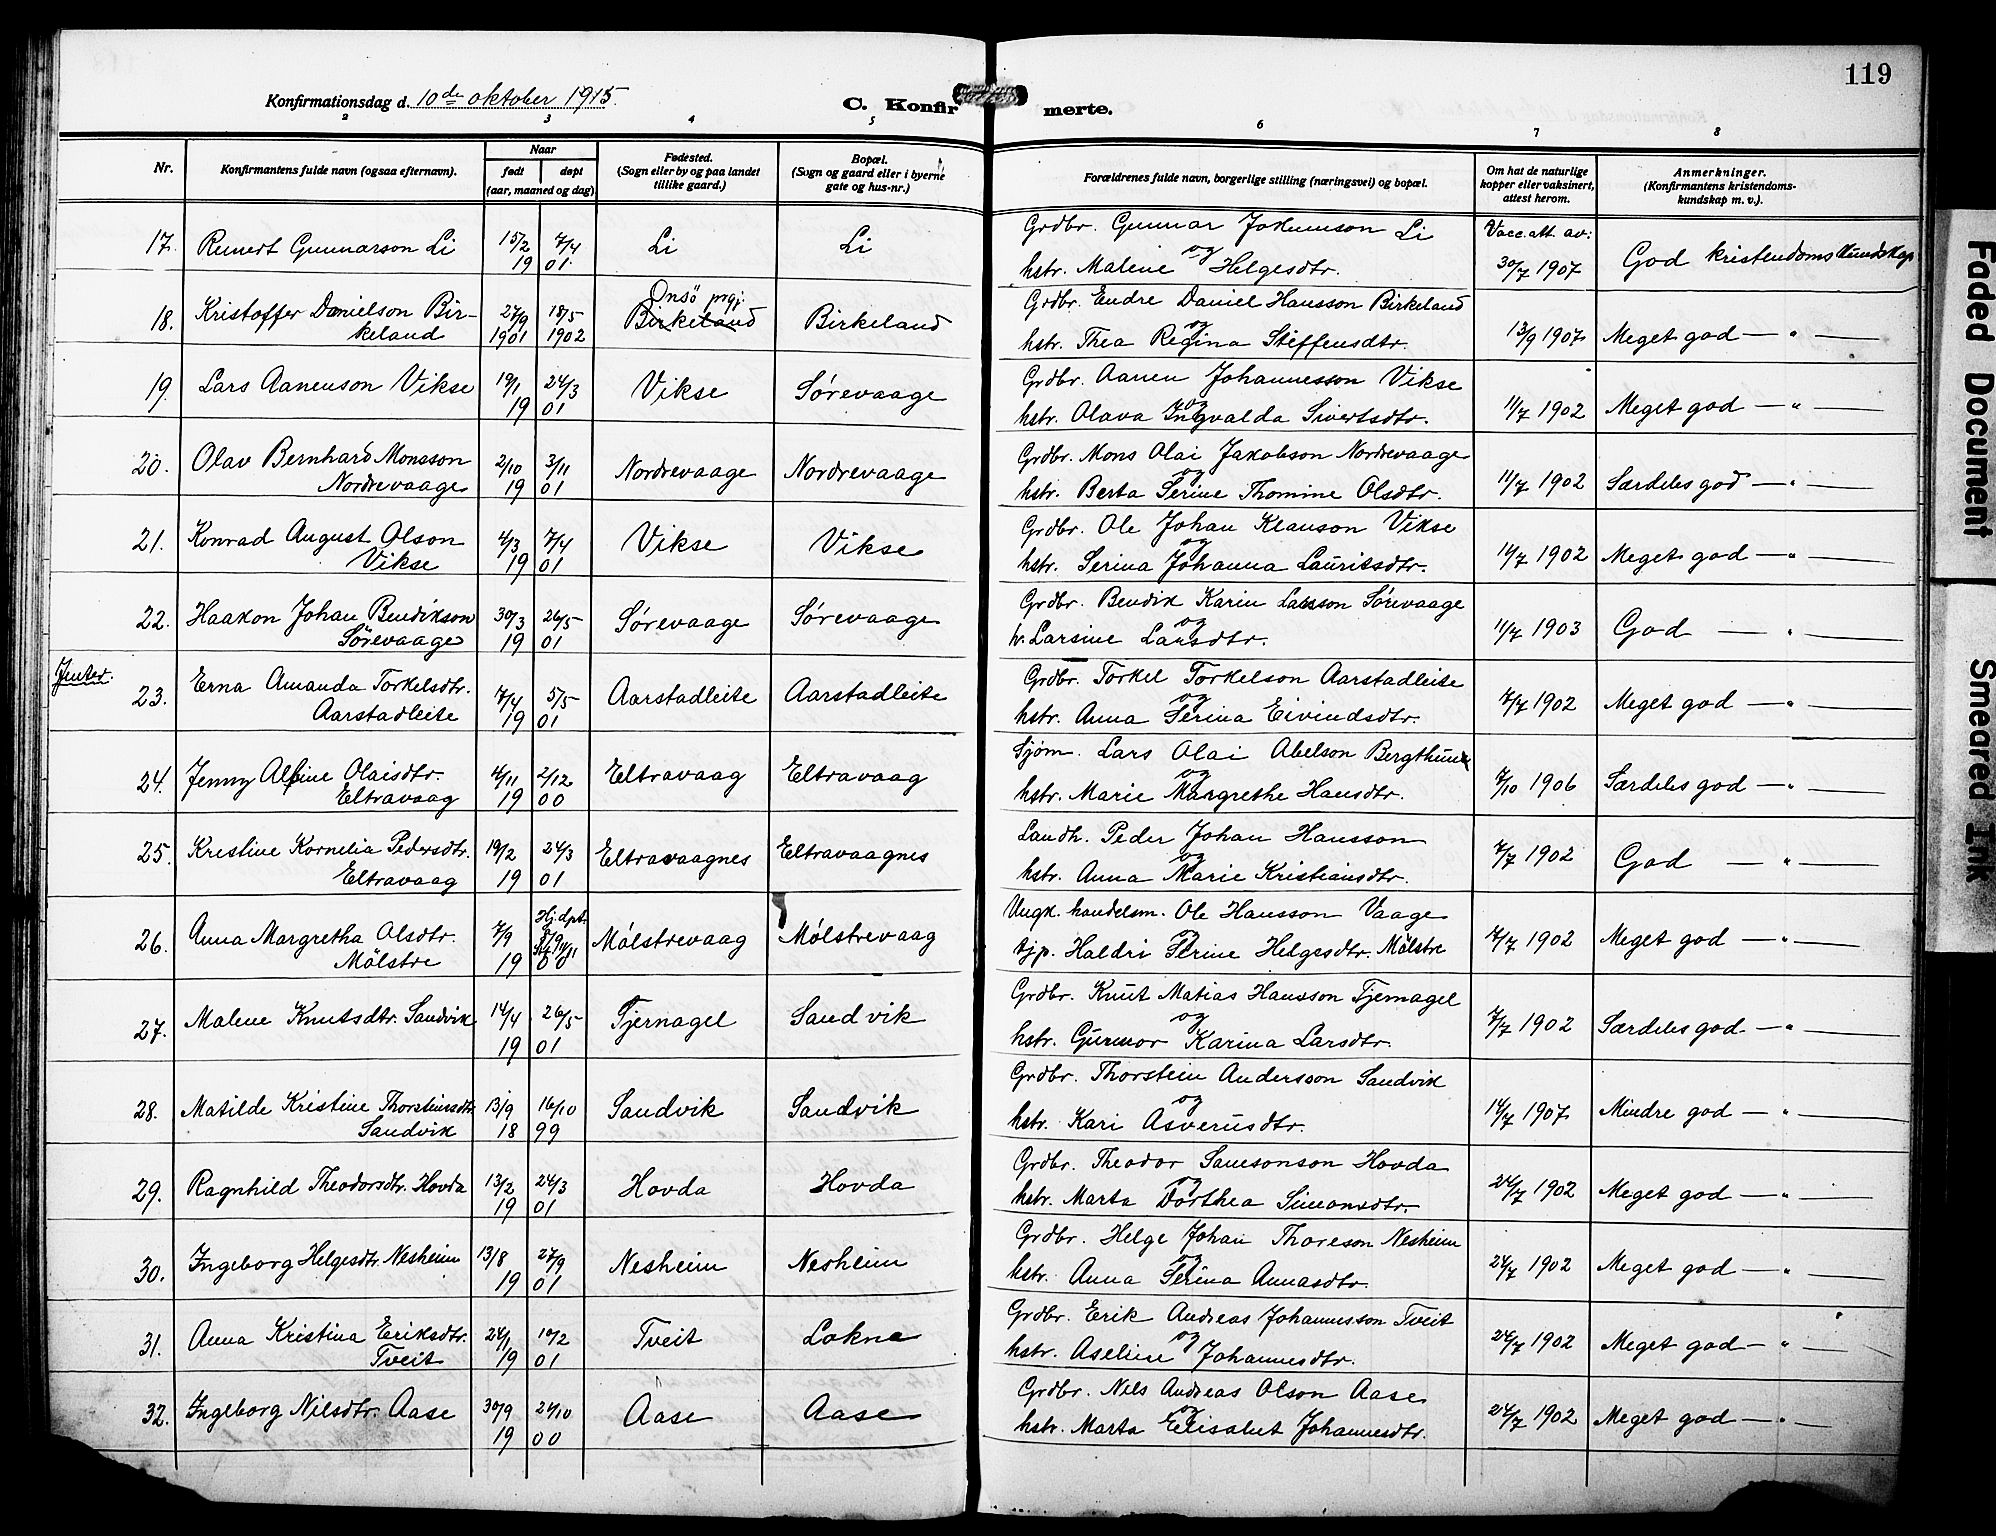 119
Konfirmationsdag d. 10de oktober 1915.
C. Konfirmerte.
2 3 4 5 6 7 8
Nr. Konfirmantens fulde navn (ogsaa efternavn). Naar født døpt (aar, maaned og dag) Fødested. (Sogn eller by og paa landet tillike gaard.) Bopæl. (Sogn og gaard eller i byerne gate og hus-nr.) Forældrenes fulde navn, borgerlige stilling (næringsvei) og bopæl. Om hat de naturlige kopper eller vaksinert, attest herom. Anmerkninger. (Konfirmantens kristendoms-kundskap m. v.).
17. Reinert Gunnarson Li 15/2 7/4 Li Li Grdbr. Gunnar Jokumson Li Vacc. att. av:
19 01. og hstr. Malene Helgesdtr. 30/7 1907 God kristendomskundskap
18. Kristoffer Danielson Bir- 27/9 18/5 Onsö prgj. Birkeland Birkeland Grdbr. Endre Daniel Hansson Birkeland
keland 1901 1902 og hstr. Thea Regina Steffensdtr. 13/9 1907 Meget god — " —
19. Lars Aanenson Vikse 19/1 24/3 Vikse Sørevaage Grdbr. Aanen Johannesson Vikse
19 01 og hstr. Olava Ingvalda Sivertsdtr. 11/7 1902 Meget god — " —
20. Olav Bernhard Monsson 2/10 3/11 Nordrevaage Nordrevaage Grdbr. Mons Olai Jakobson Nordrevaage
Nordrevaage 19 01 og hstr. Berta Serine Thomine Olsdtr. 11/7 1902 Særdeles god — " —
21. Konrad August Olson 4/3 7/4 Vikse Vikse Grdbr. Ole Johan Klauson Vikse
Vikse 19 01 og hstr. Serina Johanna Lauritsdtr. 11/7 1902 Meget god — " —
22. Haakon Johan Bendikson 30/3 26/5 Sørevaage Sørevaage Grdbr. Bendik Karin Larsson Sørevaage
Sørevaage 19 01 og h. Larsine Larsdtr. 11/7 1903 God — " —
Jenter.
23. Erna Amanda Torkelsdtr. 17/4 5/5 Aarstadleite Aarstadleite Grdbr. Torkel Torkelson Aarstadleite
Aarstadleite 19 01 og hstr. Anna Serina Eivindsdtr. 7/7 1902 Meget god — " —
24. Jenny Alfine Olaisdtr. 4/11 2/12 Eltravaag Eltravaag Sjøm. Lars Olai Abelson
Eltravaag 19 00 og hstr. Marie Margrethe Hansdtr. 7/10 1906 Særdeles god — " —
25. Kristine Kornelia Pedersdtr. 19/2 24/3 Eltravaagnes Eltravaagnes Landh. Peder Johan Hansson
Eltravaag 19 01 og hstr. Anna Marie Kristiansdtr. 7/7 1902 God — " —
26. Anna Margretha Olsdtr. 7/9 Hj. dpt. Mølstrevaag Mølstrevaag Ungk. handelsm. Ole Hansson Vaage
Mölstre 19 00 og tjp. Haldri Serine Helgesdtr. Mölstre 7/7 1902 Meget god — " —
27. Malene Knutsdtr. Sandvik 14/4 26/5 Tjernagel Sandvik Grdbr. Knut Matias Hansson Tjernagel
19 01 og hstr. Gunnor Karina Larsdtr. 7/7 1902 Særdeles god — " —
28. Matilde Kristine Thorsteinsdtr. 13/9 16/10 Sandvik Sandvik Grdbr. Thorstein Andersson Sandvik
Sandvik 18 99 og hstr. Kari Asverusdtr. 14/7 1907 Mindre god — " —
29. Ragnhild Theodorsdtr. Hovda 13/2 24/3 Hovda Hovda Grdbr. Theodor Samsonson Hovda
19 01 og hstr. Marta Dorthea Simonsdtr. 24/7 1902 Meget god — " —
30. Ingeborg Helgesdtr. Nesheim 13/8 27/9 Nesheim Nesheim Grdbr. Helge Johan Thoreson Nesheim
19 01 og hstr. Anna Serina Annasdtr. 24/7 1902 Meget god — " —
31. Anna Kristina Eriksdtr. 24/1 10/2 Tveit Lokna Grdbr. Erik Andreas Johannesson Tveit
Tveit 19 01 og hstr. Aseline Johannesdtr. 24/7 1902 Meget god — " —
32. Ingeborg Nilsdtr. Aase 30/9 24/10 Aase Aase Grdbr. Nils Andreas Olson Aase
19 00 og hstr. Marta Elisabet Johannesdtr. 24/7 1902 Meget god — " —
Faded Document
Smeared Ink